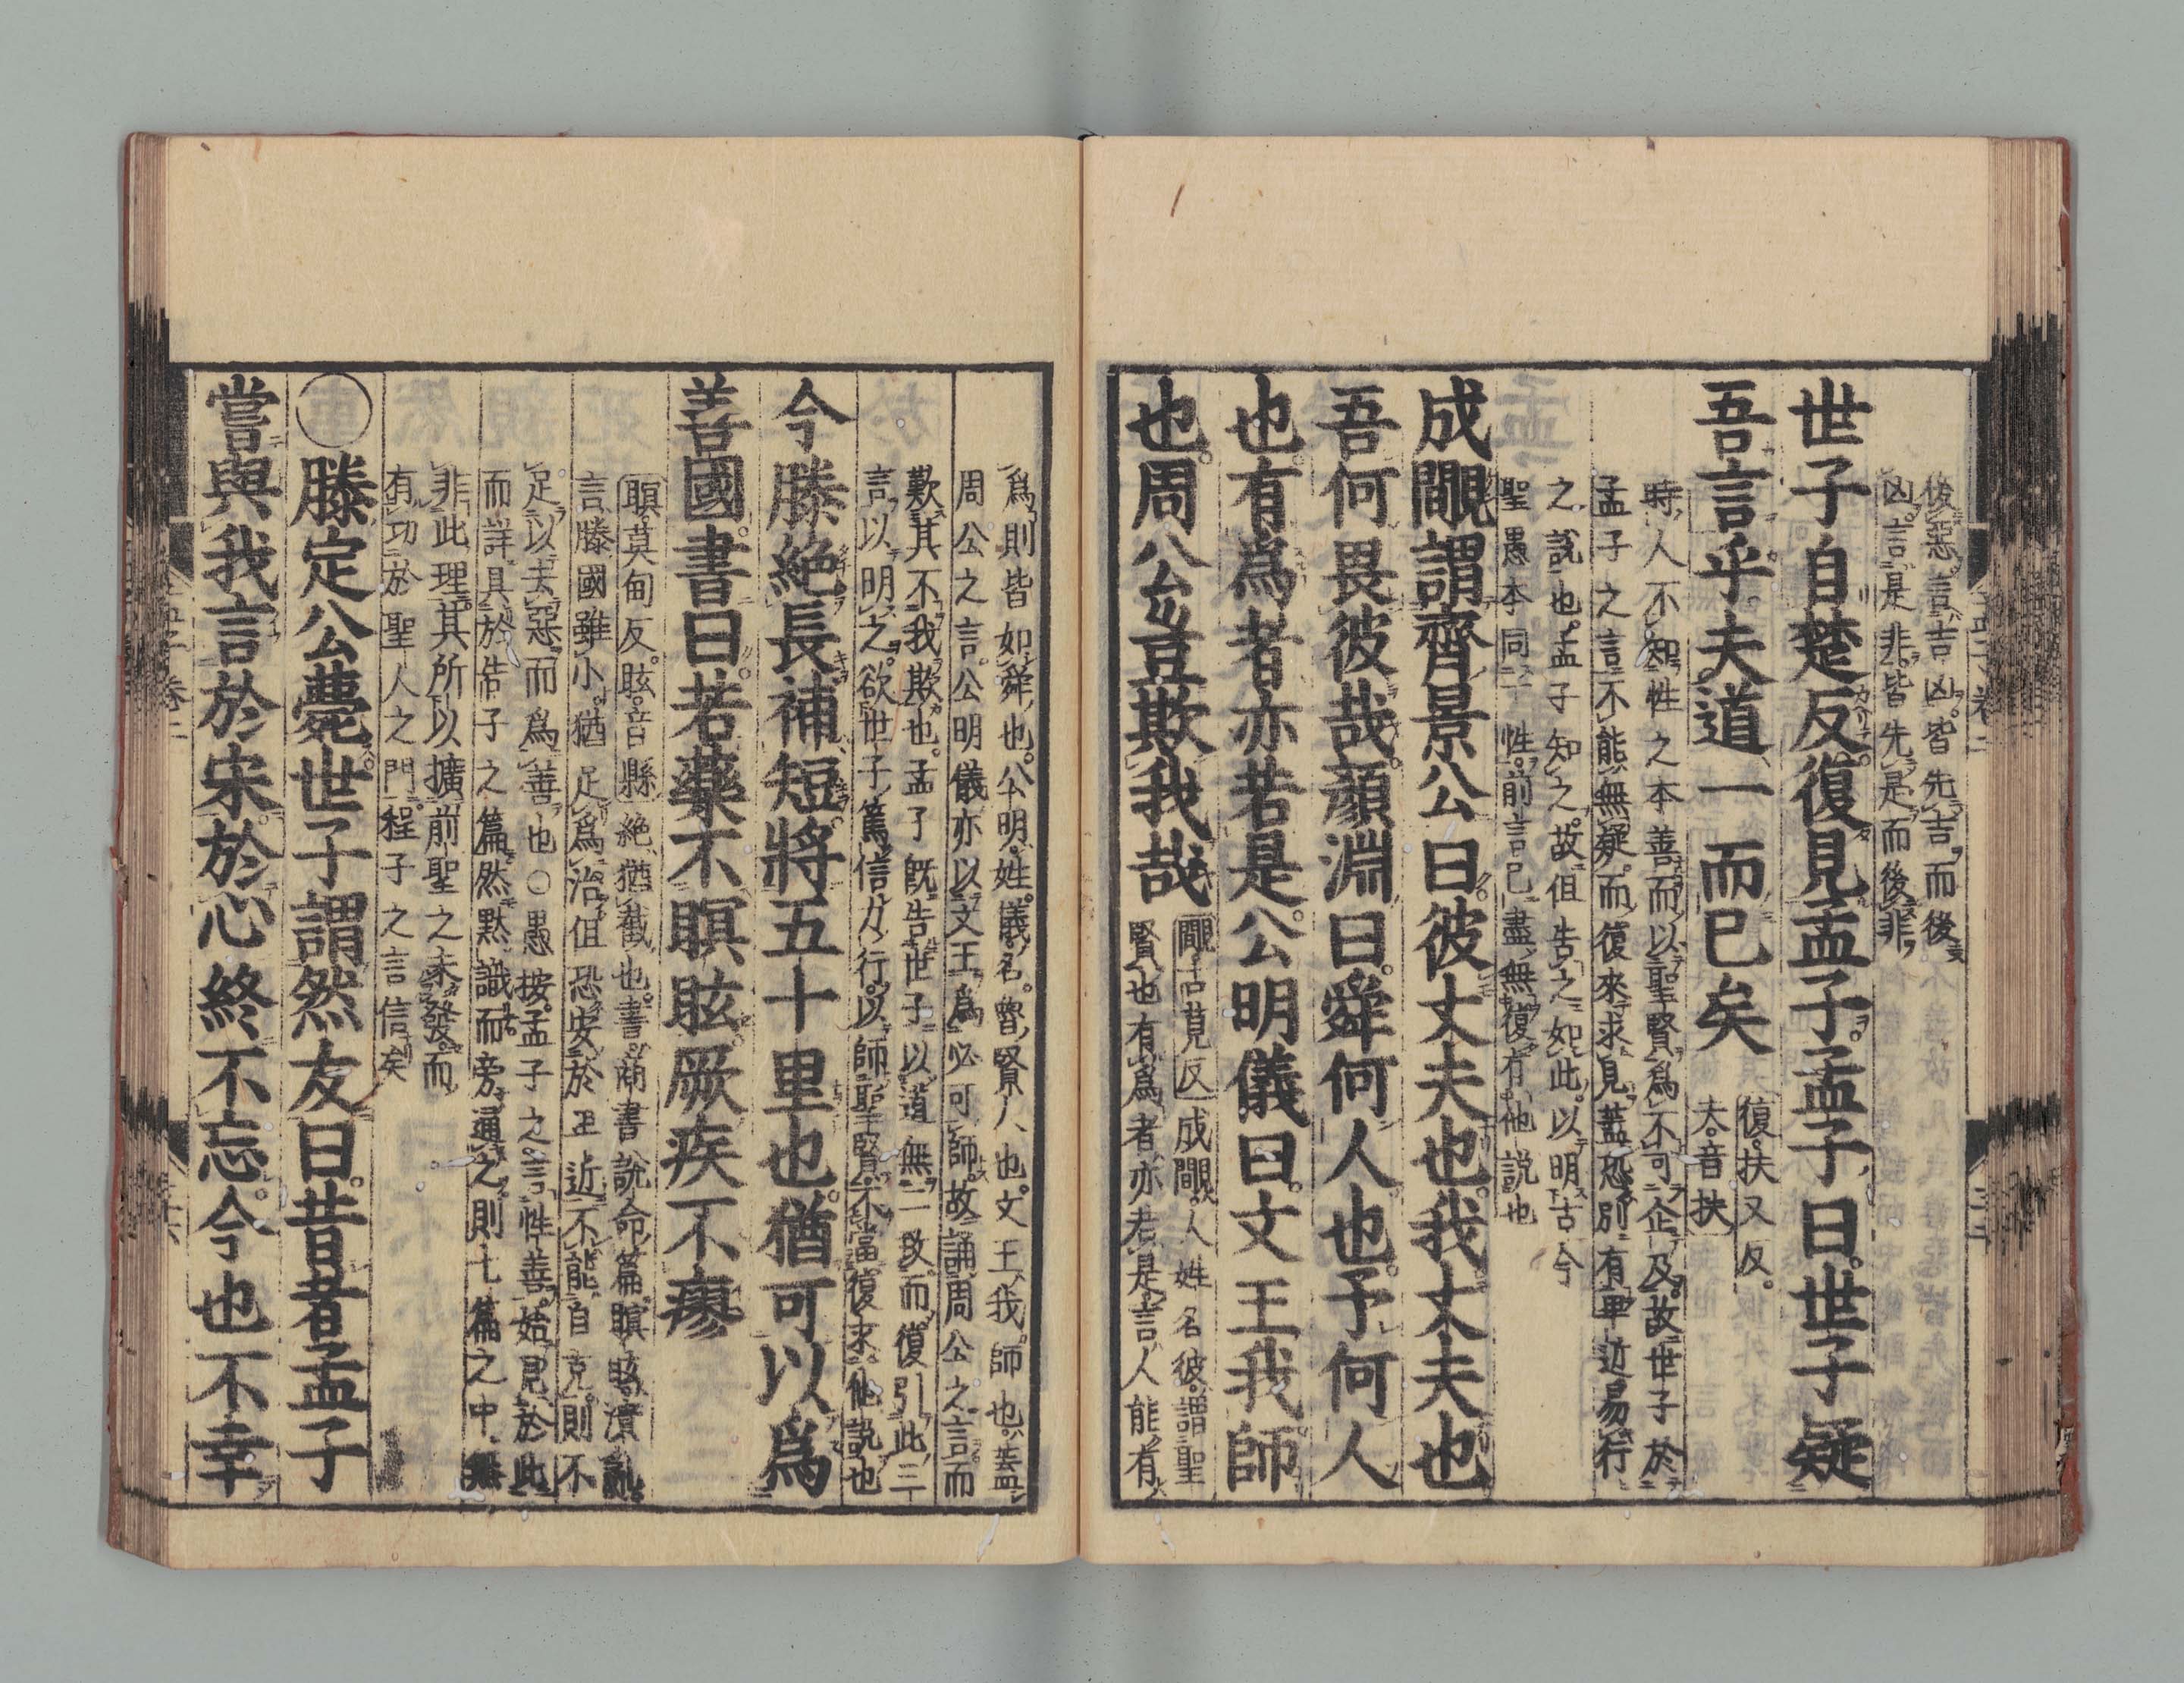 後惡言吉凶皆先吉而後
凶言是非皆先是而後非
世子自楚反復見孟子孟子曰世子疑
吾言乎夫道一而已矣
復扶又反
夫音扶
時人不知性之本善而以聖賢爲不可企及故世子於
孟子之言不能無疑而復來求見蓋恐別有卑近易行
之說也孟子知之故但告之如此以明古今
聖愚本同一性前言已盡無復有他說也
成覵謂齊景公曰彼丈夫也我丈夫也
吾何畏彼哉顏淵曰舜何人也予何人
也有爲者亦若是公明儀曰文王我師
也周公豈欺我哉
覵古莧反成覵人姓名彼謂聖
賢也有爲者亦若是言人能有
爲則皆如舜也公明姓儀名魯賢人也文王我師也蓋
周公之言公明儀亦以文王爲必可師故誦周公之言而
歎其不我欺也孟子既告世子以道無二致而復引此三
言以明之欲世子篤信力行以師聖賢不當復求他說也
今滕絶長補短將五十里也猶可以爲
善國書曰若藥不瞑眩厥疾不瘳
瞑莫甸反眩音縣絶猶截也書商書說命篇瞑眩潰亂
言滕國雖小猶足爲治但恐安於卑近不能自克則不
足以去惡而爲善也○愚按孟子之言性善始見於此
而詳具於告子之篇然默識而旁通之則七篇之中無
非此理其所以擴前聖之未發而
有功於聖人之門程子之言信矣
○滕定公薨世子謂然友曰昔者孟子
嘗與我言於宋於心終不忘今也不幸